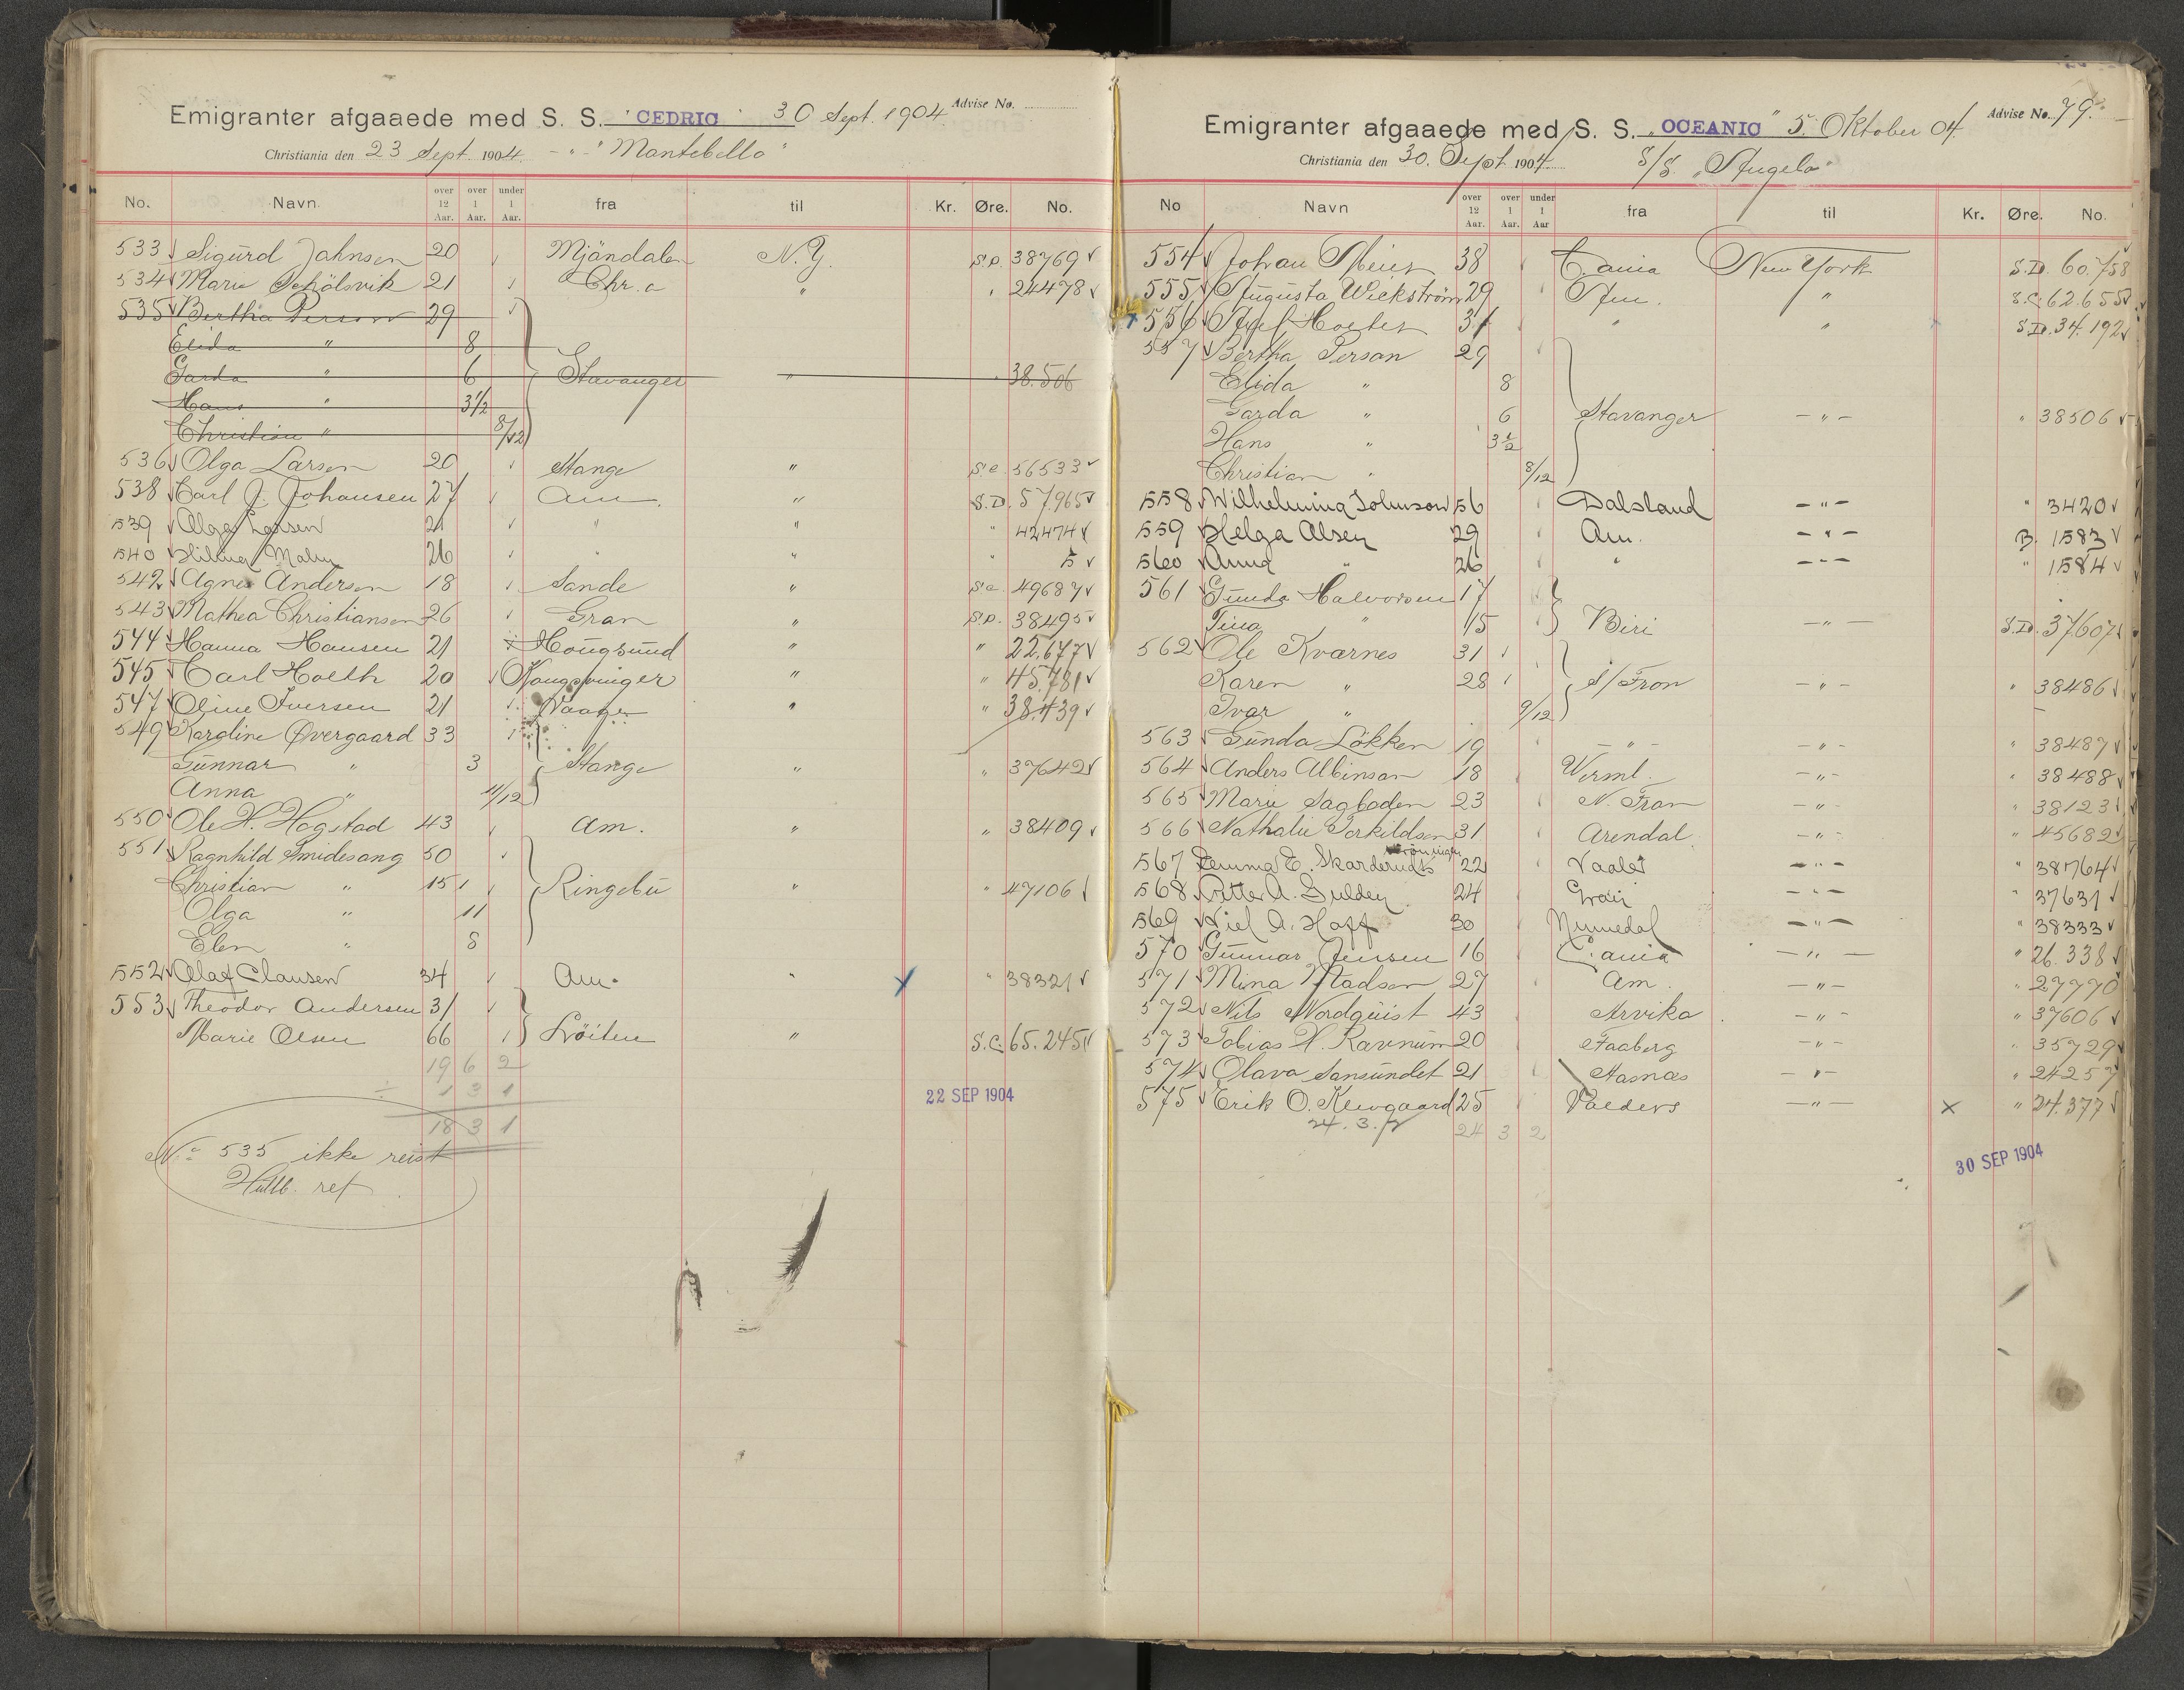 Emigranter afgaaede med S. S. "CEDRIC" 30 Sept. 1904 Advise No.
Christiania den 23 Sept. 1904. - " - "Montebello"
No. Navn. over 12 Aar. over 1 Aar. under 1 Aar. fra til Kr. Øre. No.
533 Sigurd Jahnsen 20 Mjöndalen N.Y. S.D. 38769
534 Marie 21 Chr.a " " 24478
535 Bertha Person 29
Elida " 8
Garda " 6 Stavanger " " 38.506
Hans " 3 1/2
Christian " 8/12
536 Olga Larsen 20 Stange " S.C. 56533
538 Carl J. Johansen 27 Am. " S.D. 57.965
539 Olga Larsen 21 " " " 42474
540 Hilma Malm 26 " " " 5
542 Agnes Andersen 18 Sande " S.C. 49687
543 Mathea Christiansen 26 Gran " S.D. 38495
544 Hanna Hansen 21 Hougsund " " 22.677
545 Carl Holth 20 Kongsvinger " " 45.781
547 Oline Iversen 21 Vaage " " 38.439
549 Karoline Øvergaard 33
Gunnar " 3 Stange " " 37642
Anna " 11/12
550 Ole H. Hogstad 43 Am. " " 38409
551 Ragnhild Smidesang 50
Christian " 15 Ringebu " " 47106
Olga " 11
Elen " 8
552 Olaf Clausen 34 Am. " x " 38321
553 Theodor Andersen 31
Marie Olsen 66 Löiten " S.C. 65.245
19 6 2
÷ 1 3 1
18 3 1
22 SEP 1904
No 535 ikke reist
ref.
Emigranter afgaaede med S. S. "OCEANIC" 5. Oktober 04. Advise No. 79.
Christiania den 30. Sept 1904. S/S. "Angelo"
No Navn over 12 Aar. over 1 Aar. under 1 Aar fra til Kr. Øre. No.
554 Johan Meier 38 C.ania New York S.D. 60.758
555 Augusta Wickström 29 Am. " S.C. 62.655
x 556 Axel Holter 31 " " S.D. 34.192
557 Bertha Person 29
Elida " 8
Garda " 6 Stavanger - " - " 38506
Hans " 3 1/2
Christian " 8/12
558 Wilhelmina Johnson 56 Dalsland - " - " 3420
559 Helga Olsen 29 Am. - " - B. 1583
560 Anna " 26 " - " - " 1584
561 Gunda Halvorsen 17
Tina " 15 Biri - " - S.D. 37.607
562 Ole Kværnes 31
Karen " 28 S/Fron - " - " 38486
Ivar " 9/12
563 Gunda Lökken 19 - " - - " - " 38487
564 Anders Albinson 18 Verml. - " - " 38488
565 Marie Sagboden 23 N. Fron - " - " 38123
566 Nathalie Torkildsen 31 Arendal. - " - " 45682
567 Emma E. Skarderud 22 Vaaler - " - " 38764
568 Petter A. Gulden 24 Gran - " - " 37631
569 Niel A. Hoff 30 Numedal - " - " 38333
570 Gunnar Jensen 16 C.ania - " - " 26.338
571 Mina Madsen 27 Am. - " - " 27770
572 Nils Nordquist 43 Arvika - " - " 37606
573 Tobias H. Ravnum 20 Faaberg - " - " 35729
574 Olava Sansundet 21 Hasnæs - " - " 24257
575 Erik O. Klevgaard 25 Valders - " - x " 24.377
24. 3. 2 24 3 2
30 SEP 1904